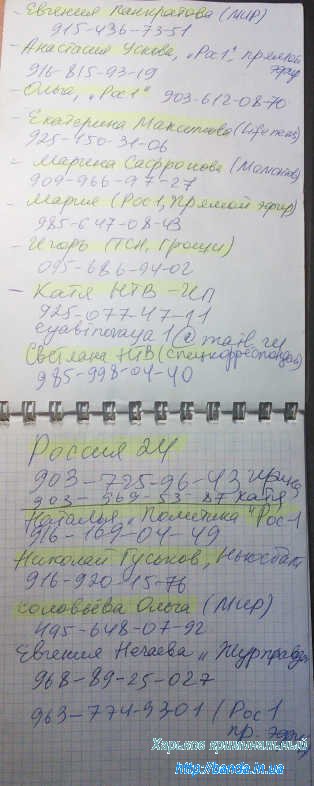 - Евгения Панкратова (МИР)
915-436-73-51
- Анастасия Ускова, "Рос1", прямой эфир
916-815-93-19
- Ольга, "Рос1" 903-612-08-70
- Екатерина Максимова (Lifenews)
925-450-31-06
- Марина Сафронова (Мамонтов)
909-966-97-27
- Мария (Рос1, Прямой эфир)
985-647-08-43
- Игорь (ТСН, Гроши)
095-686-94-02
- Катя НТВ-ЧП
925-077-47-11
@mail.ru
Светлана НТВ (Спецкорреспондент)
985-998-04-40
Россия 24
903-725-96-43 Ирина
903-569-53-87 Катя
Наталья "Политика" Рос-1
916-169-04-49
Николай Гуськов, Ньюсбалт
916-920-15-76
Соловьёва Ольга (Мир)
495-648-07-92
Евгения Нечаева "Журправда"
968-89-25-027
963-774-9301 (Рос1
пр. эфир)
Харьков криминальный
http://banda.in.ua